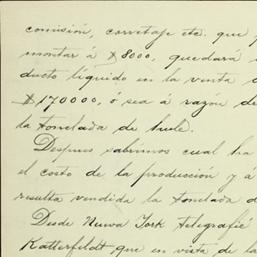 comisión, corretaje etc. que p
montar á $8000, quedará
ducto líquido en la venta
$170000, ó sea á razón de
la tonelada de hule.
Despues sabrémos cual ha
el costo de la producción y á
resulta vendida la tonelada d
Desde Nueva York telegrafié
Katterfeldt que en vista de la